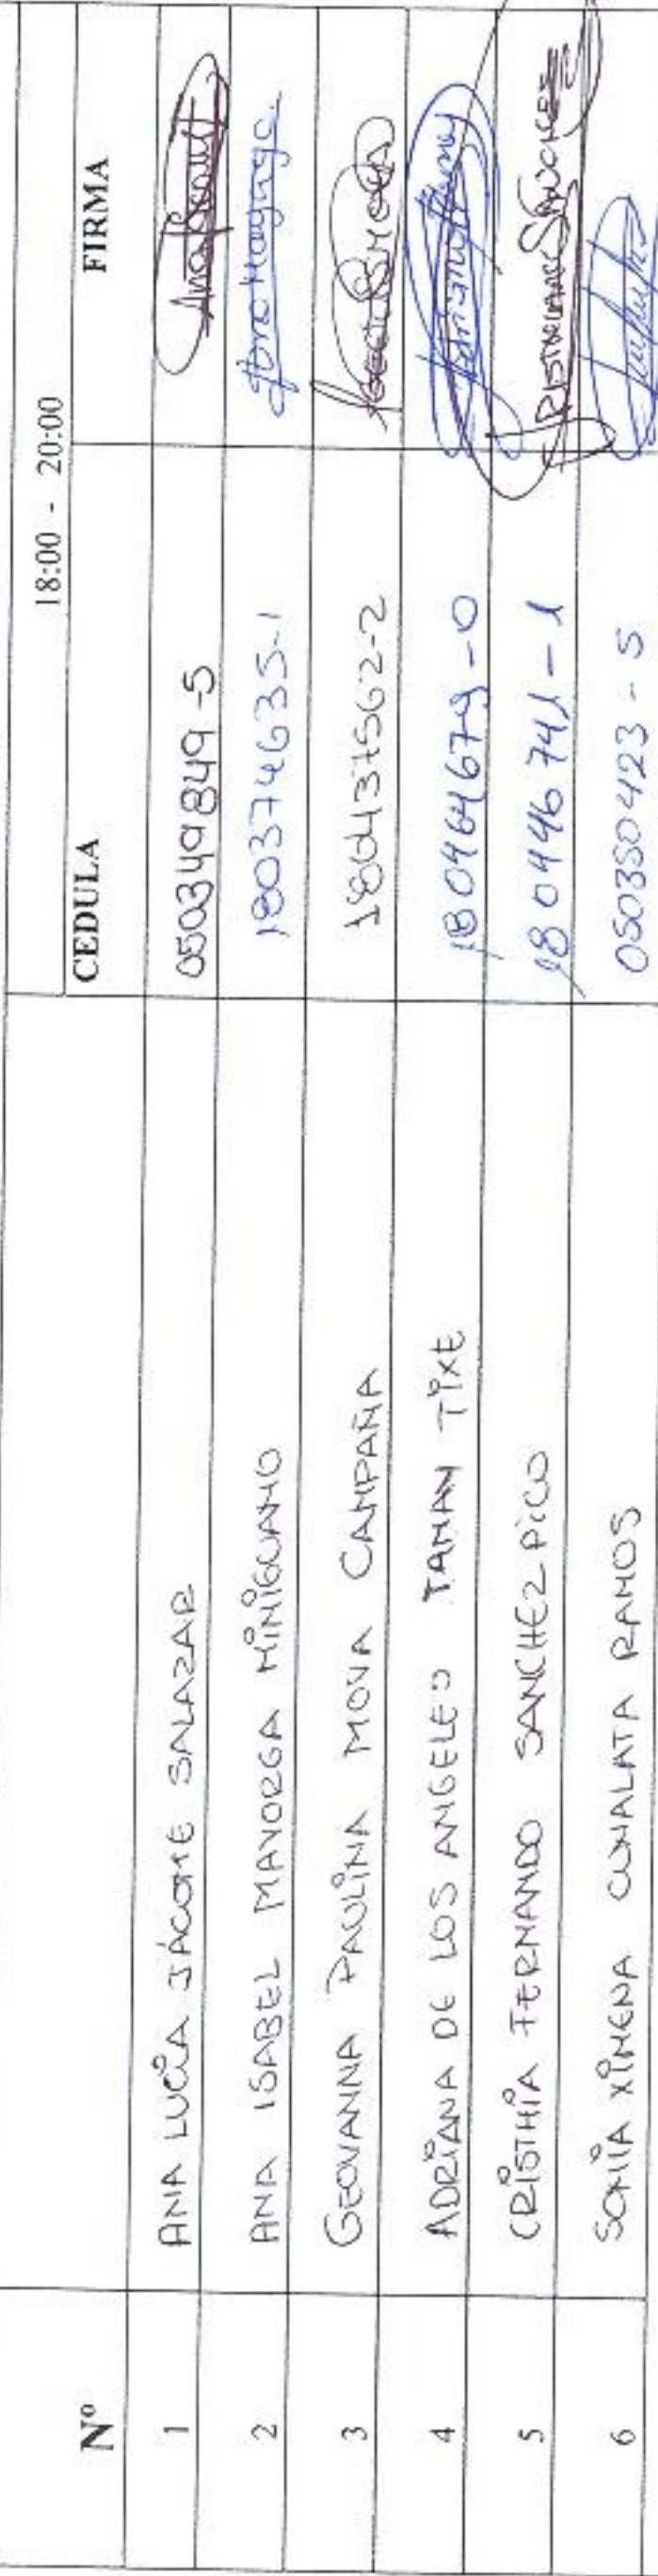 18:00 - 20:00
Nº CEDULA FIRMA
1 ANA LUCÍA JÁCOME SALAZAR 050349849-5
2 ANA ISABEL MAYORGA MINIGUANO 180374635-1 Ana Mayorga
3 GEOVANNA PAULINA MOYA CAMPAÑA 180437562-2
4 ADRIANA DE LOS ANGELES TAMAY TIXE 180464679-0
5 CRISTHIA FERNANDO SANCHEZ PICO 180446741-1
6 SONIA XIMENA CUNALATA RAMOS 050350423-5